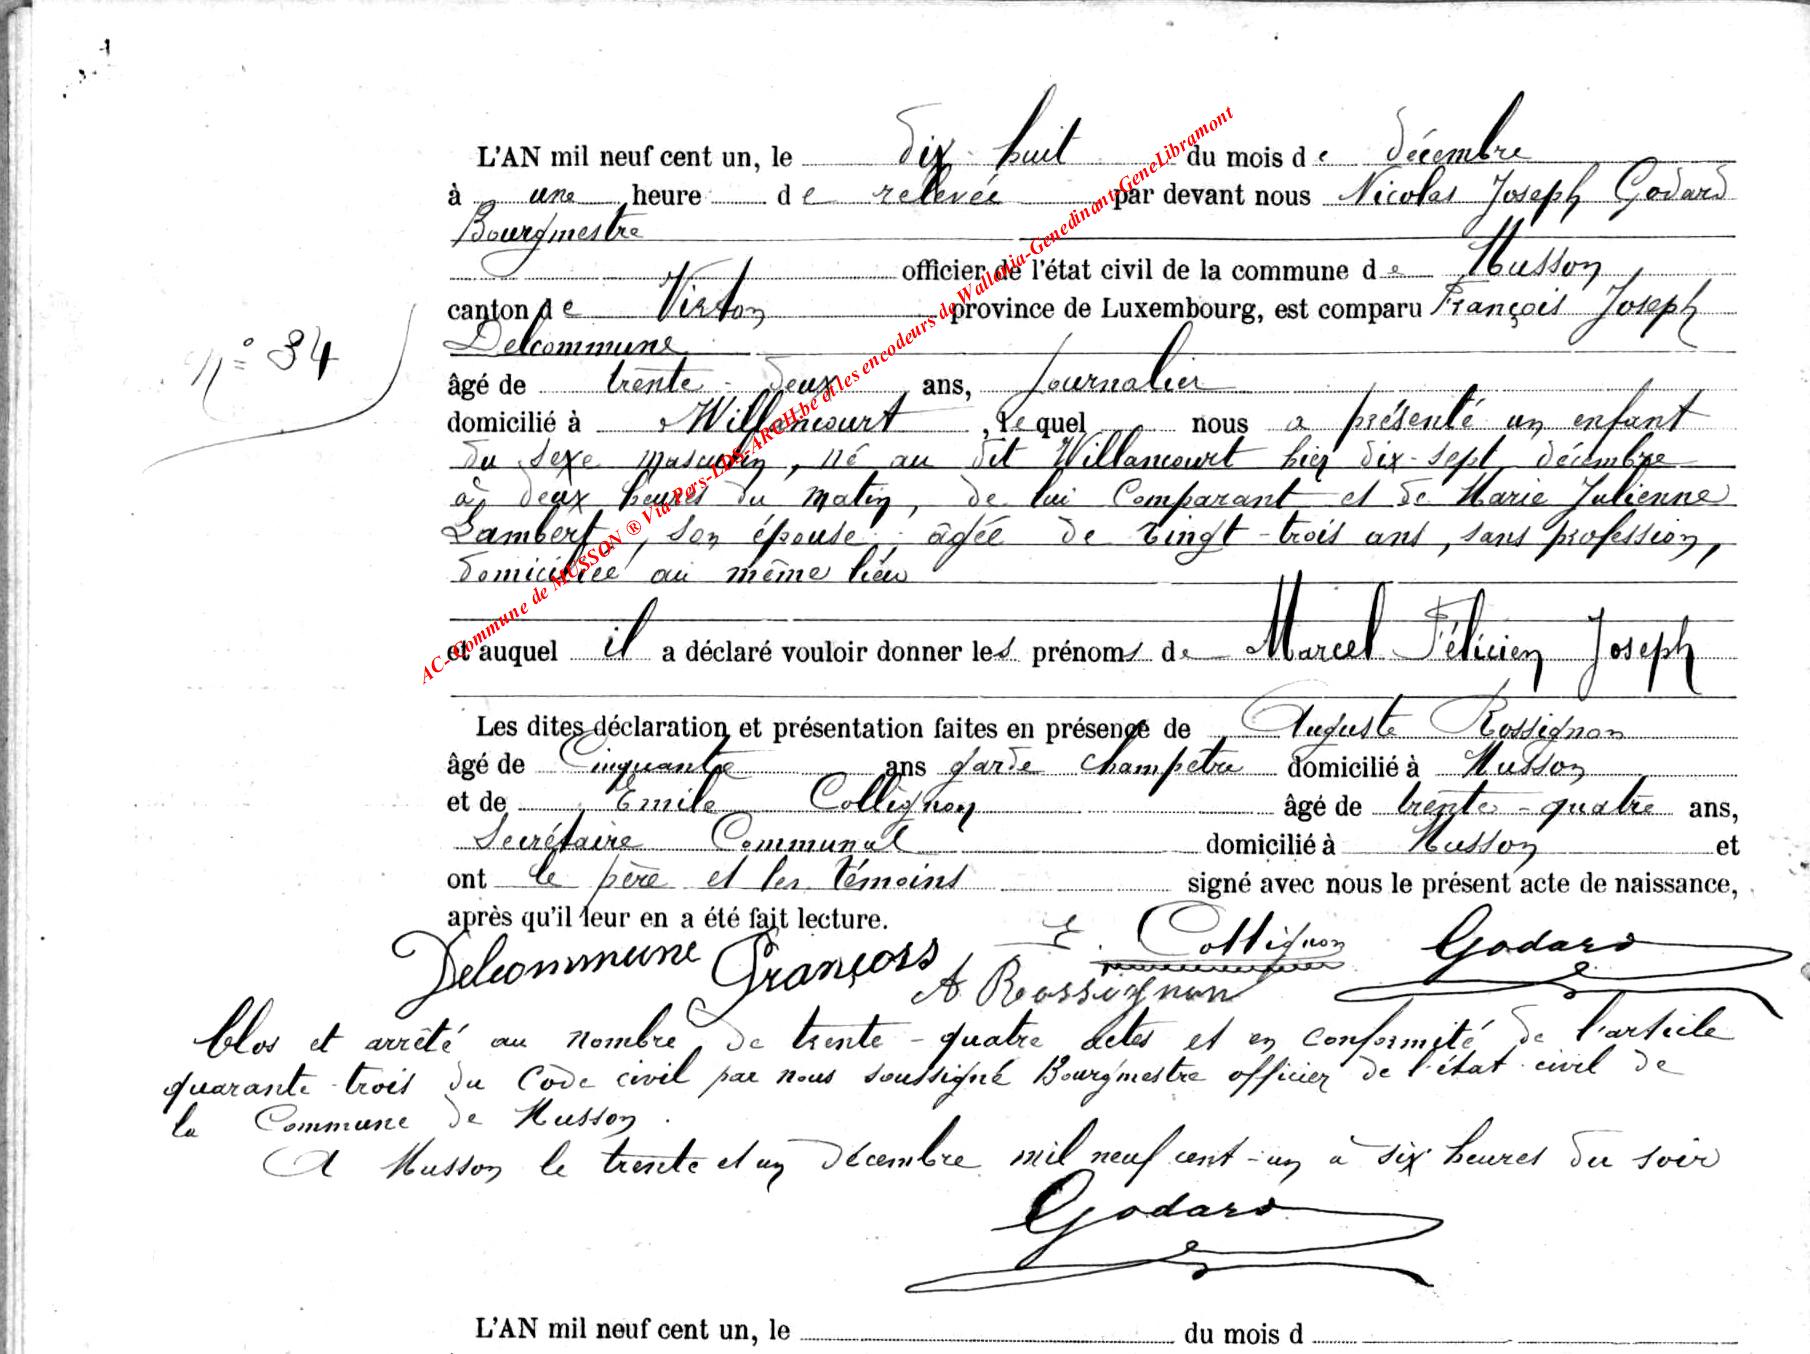 L'AN mil neuf cent un, le dix-huit du mois de décembre
à une heure de relevée par devant nous Nicolas Joseph Godard
Bourgmestre
officier de l'état civil de la commune de Musson
canton de Virton province de Luxembourg, est comparu François Joseph
Delcommune
n° 34
âgé de trente-deux ans, journalier
domicilié à Willancourt, lequel nous a présenté un enfant
du sexe masculin, né au dit Willancourt hier dix-sept décembre
à deux heures du matin, de lui comparant et de Marie Julienne
Lambert, son épouse, âgée de vingt-trois ans, sans profession,
domiciliée au même lieu
et auquel il a déclaré vouloir donner les prénoms de Marcel Félicien Joseph
Les dites déclaration et présentation faites en présence de Auguste Rossignon
âgé de Cinquante ans garde champêtre domicilié à Musson
et de Emile Collignon âgé de trente-quatre ans,
Secrétaire Communal domicilié à Musson et
ont le père et les témoins signé avec nous le présent acte de naissance,
après qu'il leur en a été fait lecture.
Delcommune François E. Collignon Godard
A Rossignon
Clos et arrêté au nombre de trente-quatre actes et en conformité de l'article
quarante-trois du Code civil par nous soussigné Bourgmestre officier de l'état civil de
la Commune de Musson.
A Musson le trente et un décembre mil neuf cent-un à six heures du soir
Godard
L'AN mil neuf cent un, le du mois d
AC- Commune de MUSSON ® Via Pers-LDS-ARCH.be et les encodeurs de Wallonia-Genedinant-GeneLibramont